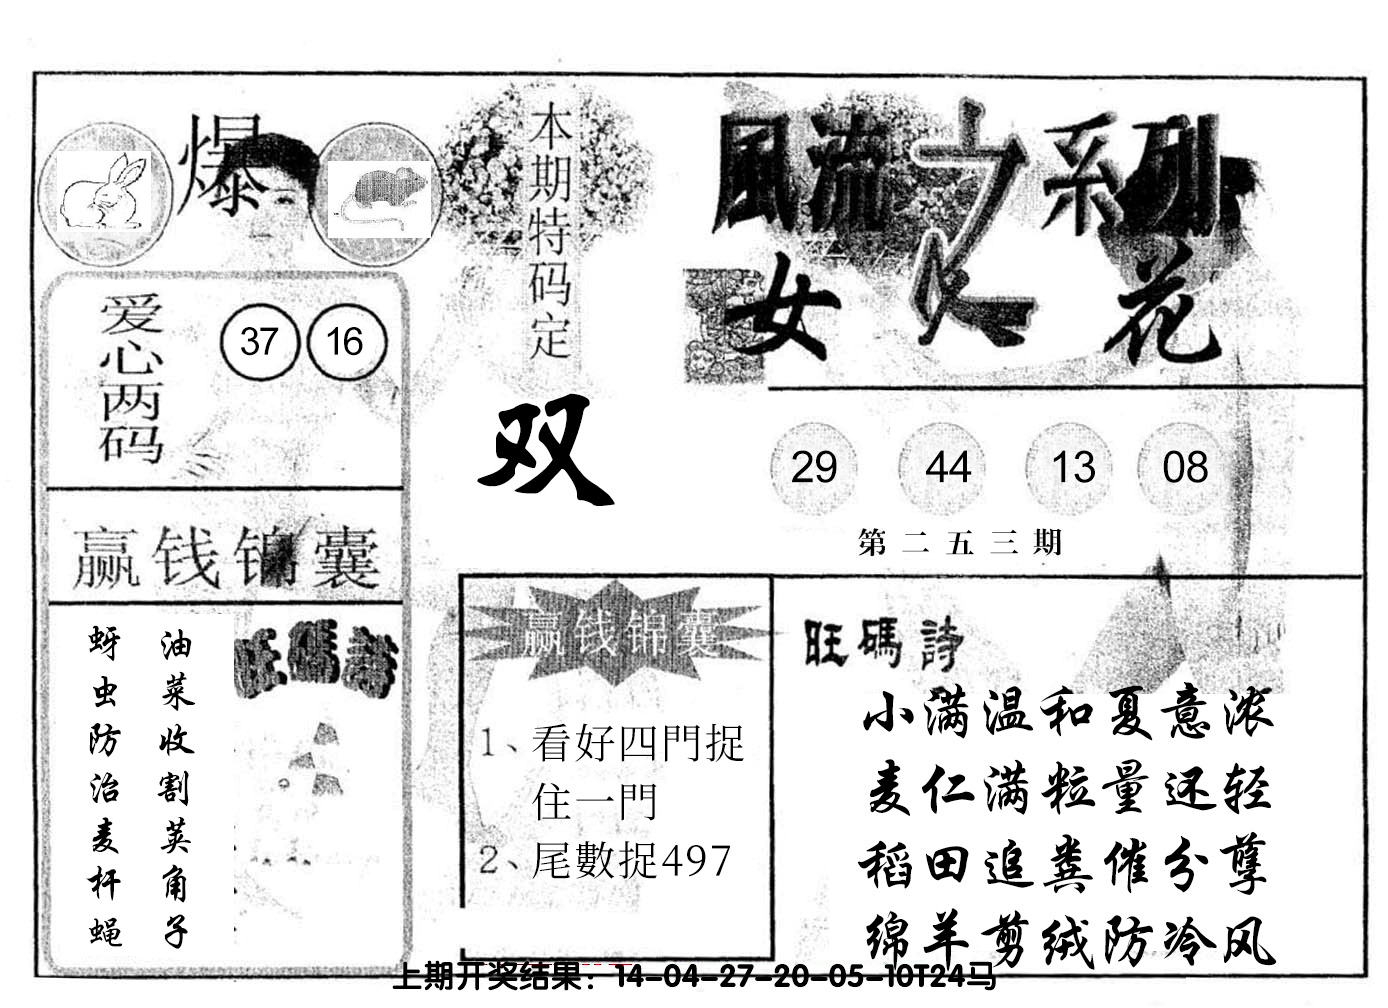 爆
本期特码定
双
風流之系列
女人花
爱心两码
37 16
29 44 13 08
第二五三期
赢钱锦囊
油菜收割荚角子
蚜虫防治麦杆蝇
旺碼詩
赢钱锦囊
1、看好四門捉
住一門
2、尾數捉497
旺碼詩
小满温和夏意浓
麦仁满粒量还轻
稻田追粪催分孽
绵羊剪绒防冷风
上期开奖结果：14-04-27-20-05-10T24马